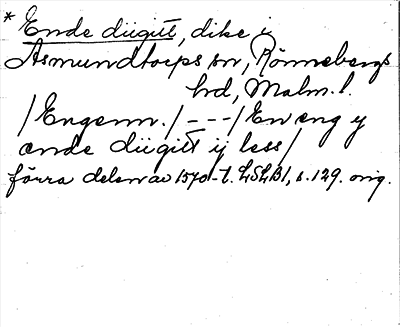 * Ende diigitt, dike i
Asmundtorps sn, Rönnebergs
hd, Malm. l.
/Engenn./ - - - /En eng y
ende diigitt ij less/
förra delen av 1570-t. LSLB1, s. 129. orig.